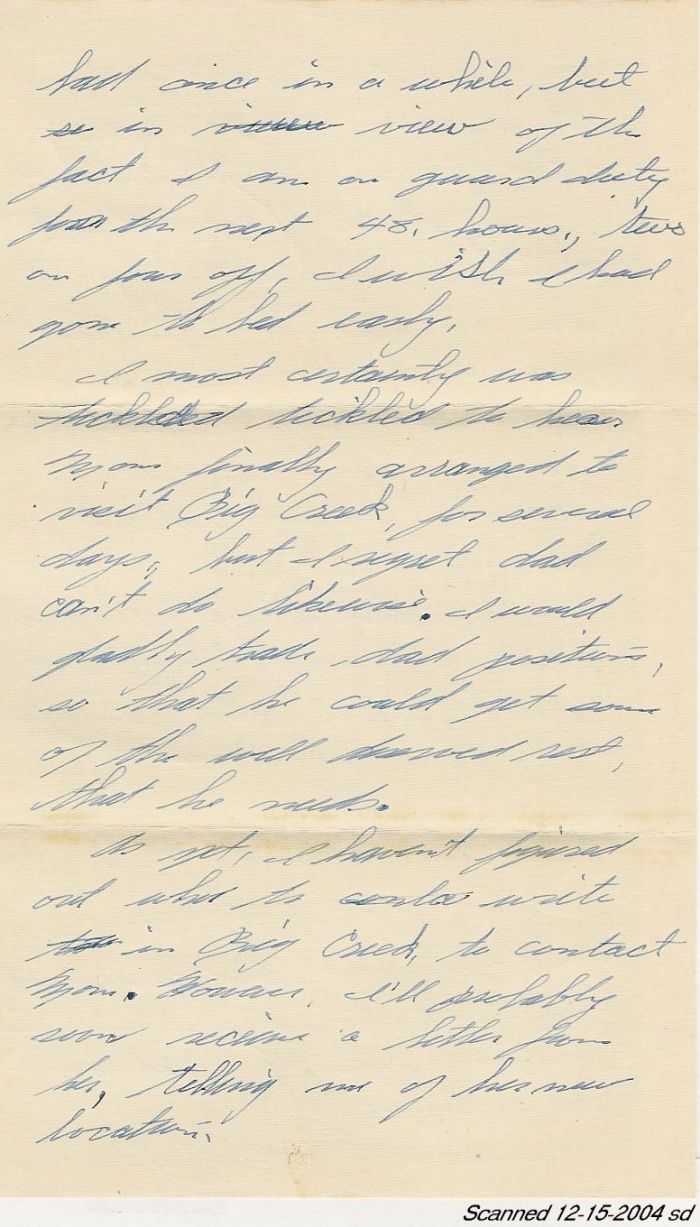 bad once in a while, but
se in view view of the
fact I am on guard duty
for the next 48. hours., two
on four off, I wish I had
gone to bed early.
I most certainly was
tickled to hear
Mom finally arranged to
visit Big Creek, for several
days, but I regret dad
can't do likewise. I would
gladly trade dad positions,
so that he could get some
of the well deserved rest,
that he needs.
As yet, I haven't figured
out who to write
in Big Creek, to contact
Mom. However, I'll probably
soon receive a letter from
her, telling me of her new
location.
Scanned 12-15-2004 sd